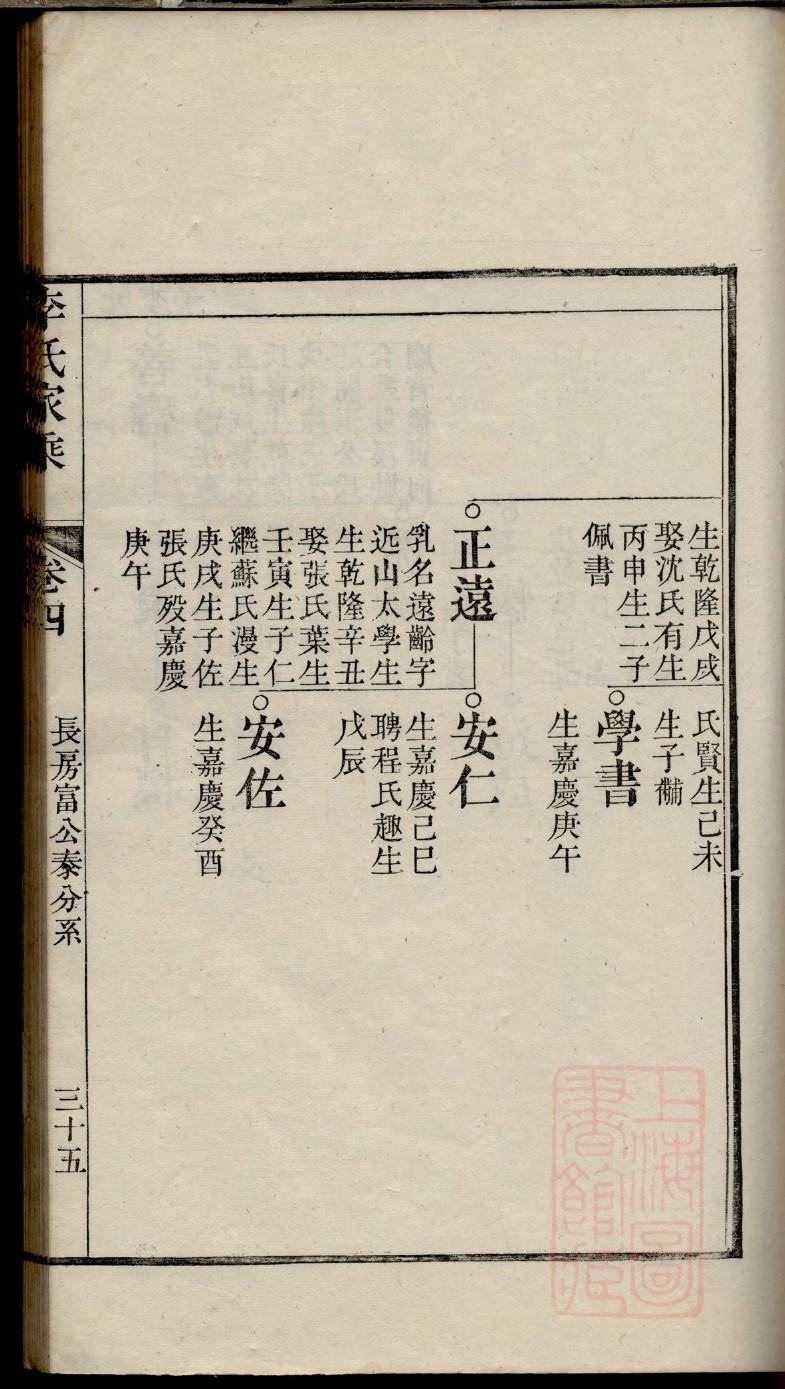 生乾隆戊戌
娶沈氏有生
丙申生二子
佩書
氏賢生己未
生子黼
學書
生嘉慶庚午
正遠
乳名遠齡字
近山太學生
生乾隆辛丑
娶張氏葉生
壬寅生子仁
繼蘇氏漫生
庚戌生子佐
張氏歿嘉慶
庚午
安仁
生嘉慶己巳
聘程氏趣生
戊辰
安佐
生嘉慶癸酉
李氏家乘
卷四
長房富公泰分系
三十五
上海圖
書館藏